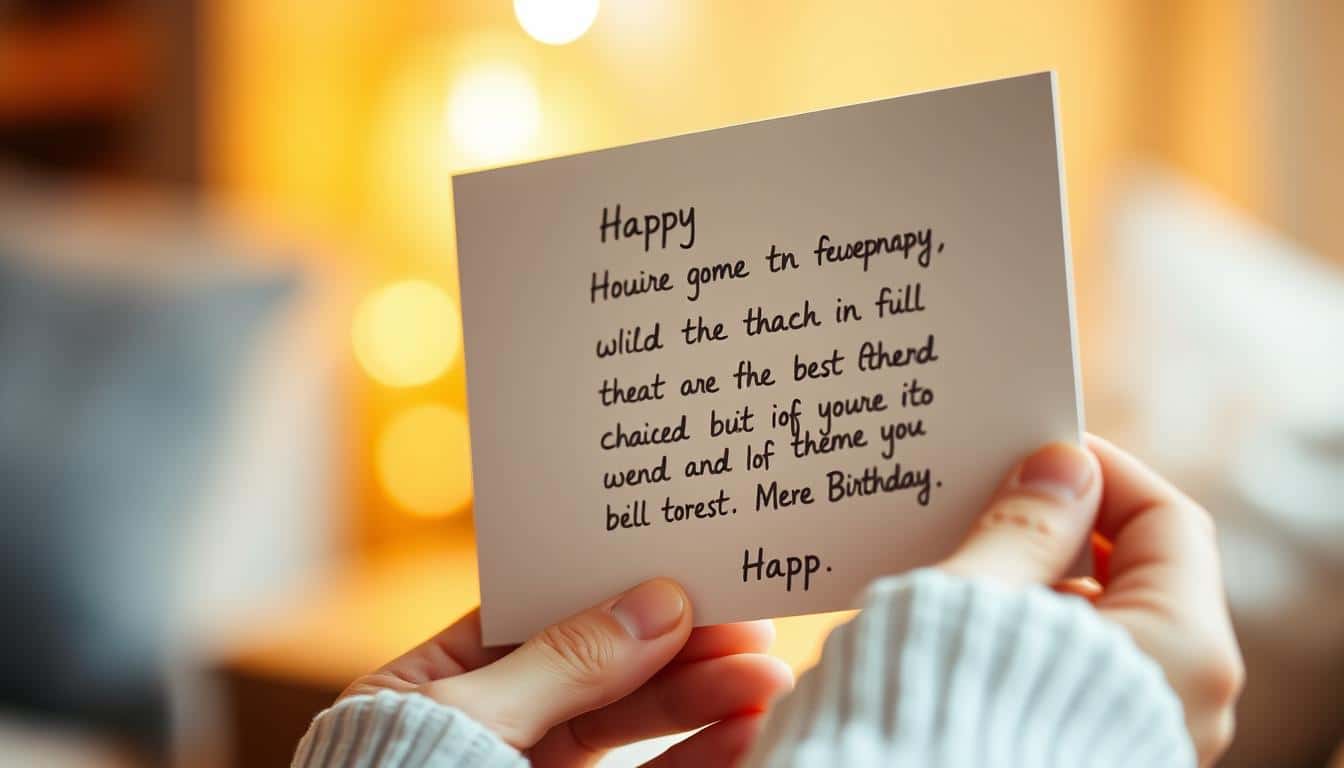 Happy
Houire gome tn fewepnapy,
wlild the thach in full
theat are the best Atherd
chaiced but iof youre ito
wend and lof theme you
bell torest. Mere Birthday.
Happ.